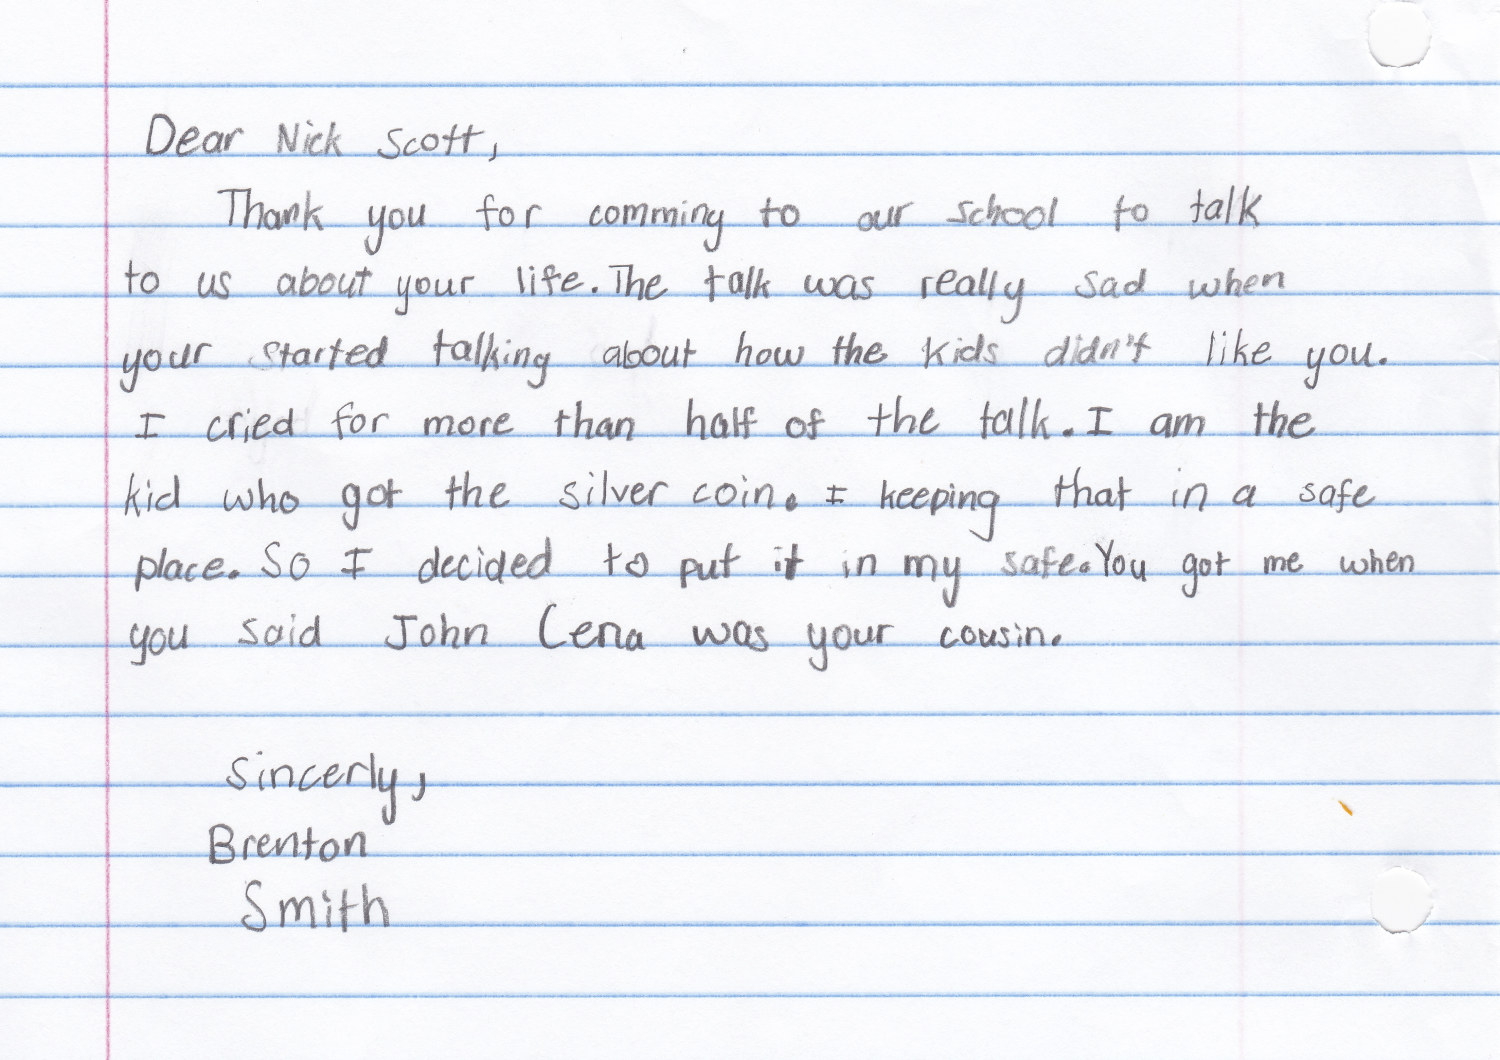 Dear Nick Scott,
Thank you for comming to our school to talk
to us about your life. The talk was really sad when
your started talking about how the kids didn't like you.
I cried for more than half of the talk. I am the
kid who got the silver coin. I keeping that in a safe
place. So I decided to put it in my safe. You got me when
you said John Cena was your cousin.
Sincerly,
Brenton
Smith